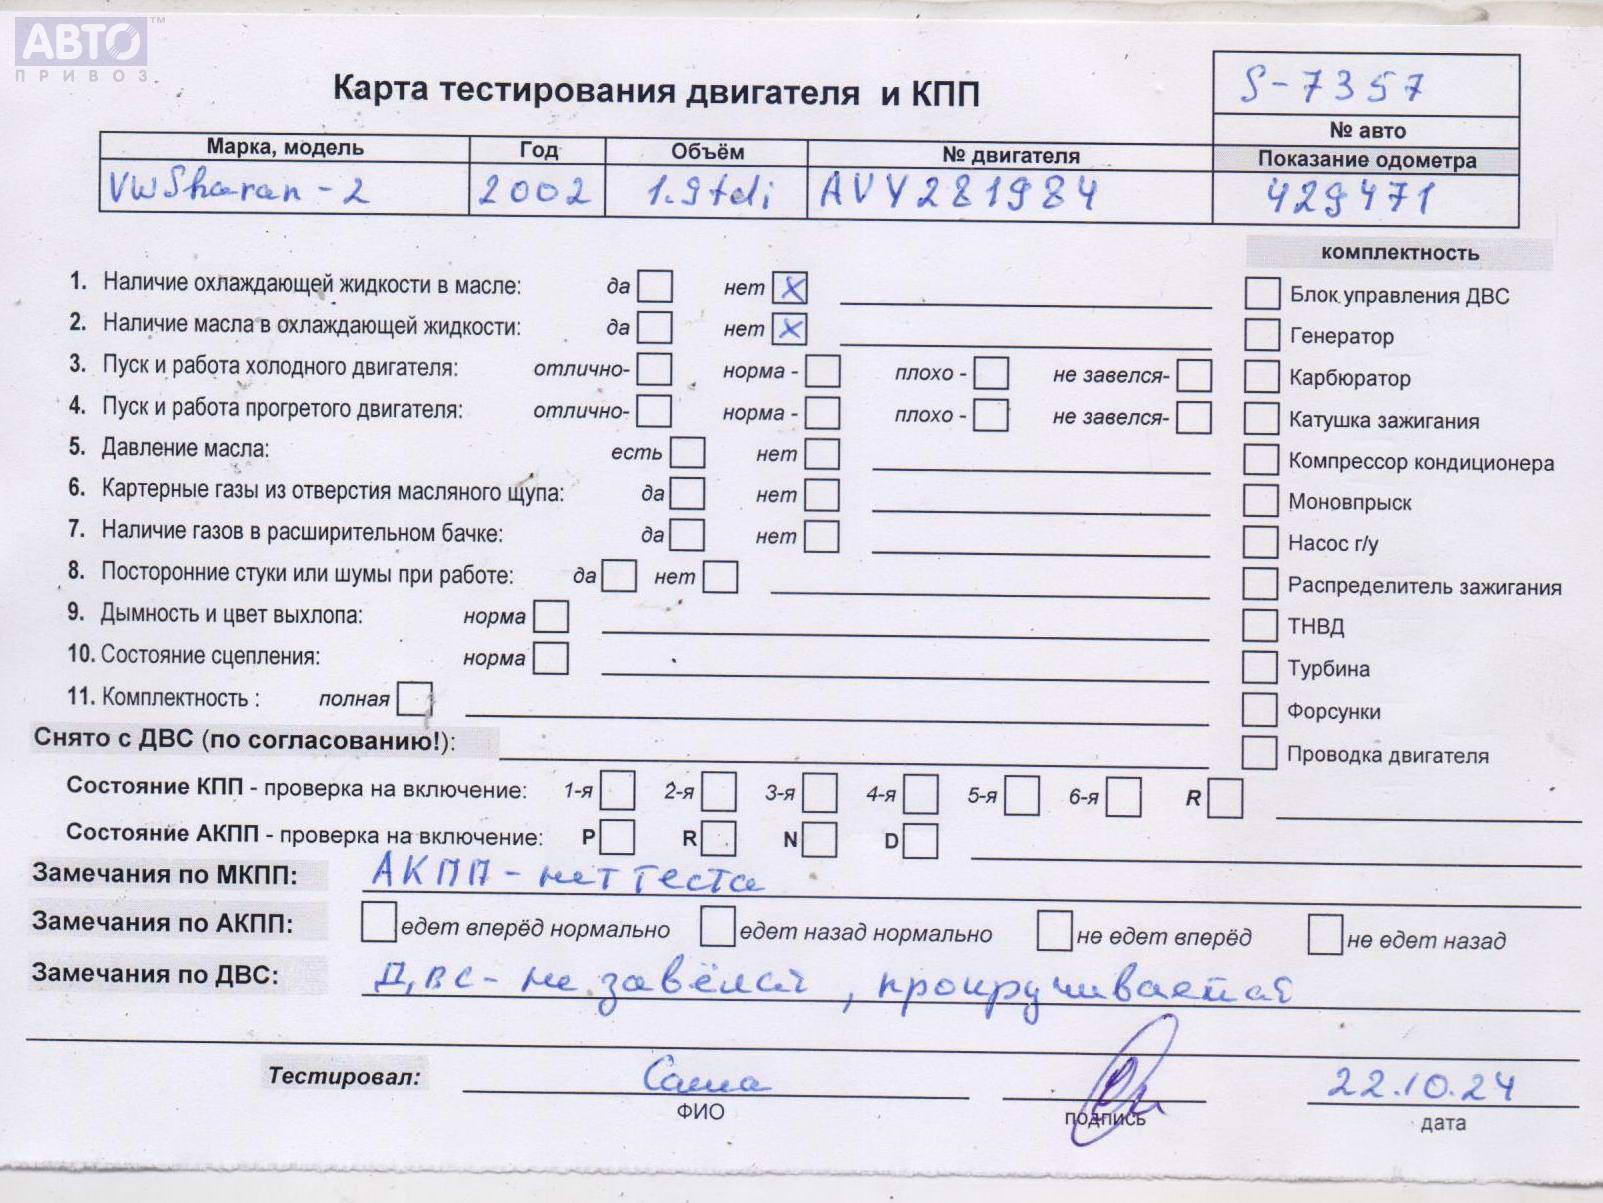 АВТО™
ПРИВОЗ
Карта тестирования двигателя и КПП
S-7357
№ авто
Марка, модель Год Объём № двигателя Показание одометра
VW Sharan-2 2002 1.9tdi AVY281984 429471
комплектность
1. Наличие охлаждающей жидкости в масле: да нет x
Блок управления ДВС
2. Наличие масла в охлаждающей жидкости: да нет x
Генератор
3. Пуск и работа холодного двигателя: отлично- норма - плохо - не завелся-
Карбюратор
4. Пуск и работа прогретого двигателя: отлично- норма - плохо - не завелся-
Катушка зажигания
5. Давление масла: есть нет
Компрессор кондиционера
6. Картерные газы из отверстия масляного щупа: да нет
Моновпрыск
7. Наличие газов в расширительном бачке: да нет
Насос г/у
8. Посторонние стуки или шумы при работе: да нет
Распределитель зажигания
9. Дымность и цвет выхлопа: норма
ТНВД
10. Состояние сцепления: норма
Турбина
11. Комплектность : полная
Форсунки
Снято с ДВС (по согласованию!):
Проводка двигателя
Состояние КПП - проверка на включение: 1-я 2-я 3-я 4-я 5-я 6-я R
Состояние АКПП - проверка на включение: P R N D
Замечания по МКПП: АКПП - нет теста
Замечания по АКПП: едет вперёд нормально едет назад нормально не едет вперёд не едет назад
Замечания по ДВС: Двс - не завёлся, прокручивается
Тестировал: Саша 22.10.24
ФИО подпись дата